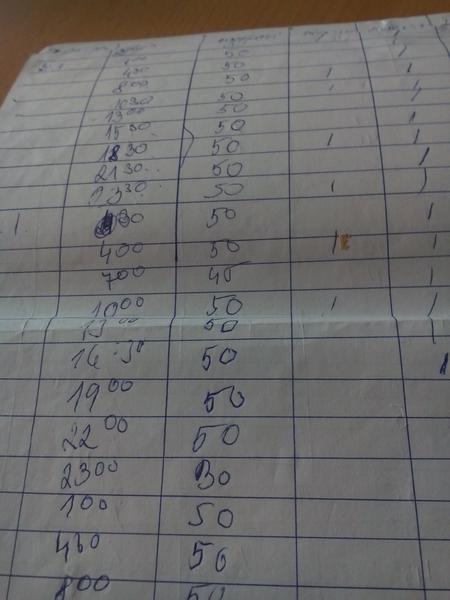 50
4³⁰ 50 1 1
8⁰⁰ 50 1 1
10³⁰ 50 1
13⁰⁰ 50 1
15³⁰ 50 1
18³⁰ 50 1 1
21³⁰ 50 1
23³⁰ 50 1 1
1. 1³⁰ 50 1
4⁰⁰ 50 1 1
7⁰⁰ 45 1
10⁰⁰ 50 1 1
13⁰⁰ 50 1
16:³⁰ 50 1
19⁰⁰ 50
22⁰⁰ 50
23⁰⁰ 30
1⁰⁰ 50
4³⁰ 50
8⁰⁰ 50